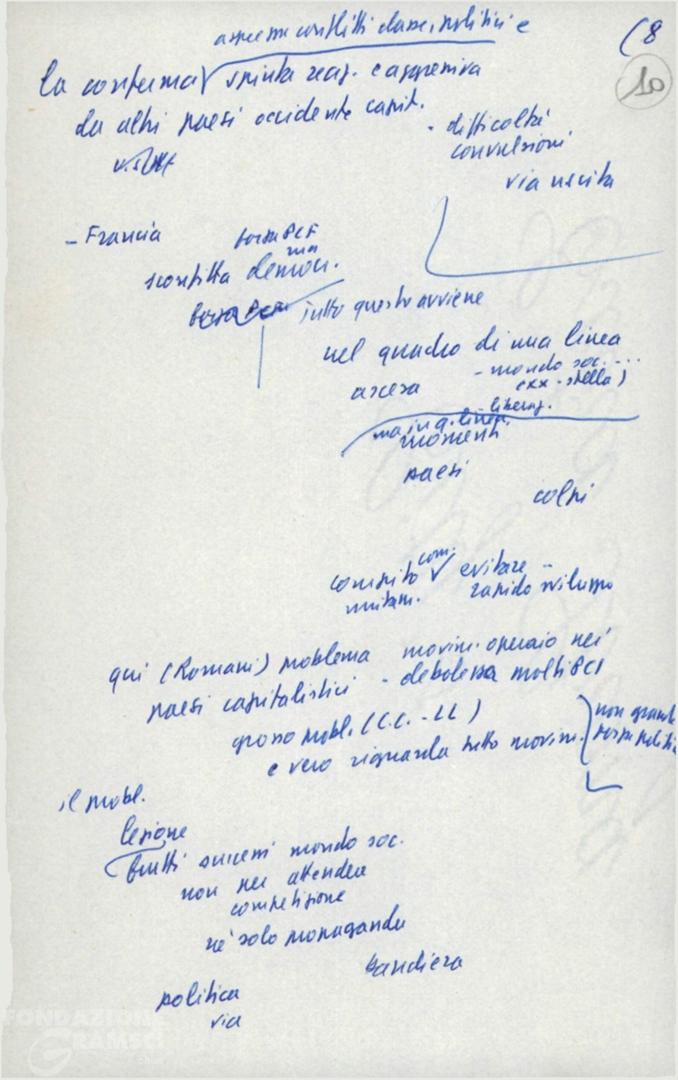 aspre conflitti classe, politici e
(8
10
la conferma spinta reaz. e aggressiva
da altri paesi occidente capit.
- difficoltà
convulsioni
via uscita
- Francia
forza PCF
ma
sconfitta democr.
tutto questo avviene
nel quadro di una linea
ascesa
- mondo soc. ...
(xx - stella)
- liberaz.
ma in q. linea
momenti
paesi
colpi
compito com.
evitare ..
rapido sviluppo
qui (Romani) problema movim. operaio nei
paesi capitalistici - debolezza molti PCI
grosso probl. (C.C. - LL)
e vero riguarda tutto movim.
non grande
forza politica
il probl.
lezione
frutti successi mondo soc.
non per attendere
competizione
né solo propaganda
bandiera
politica
via
FONDAZIONE
GRAMSCI